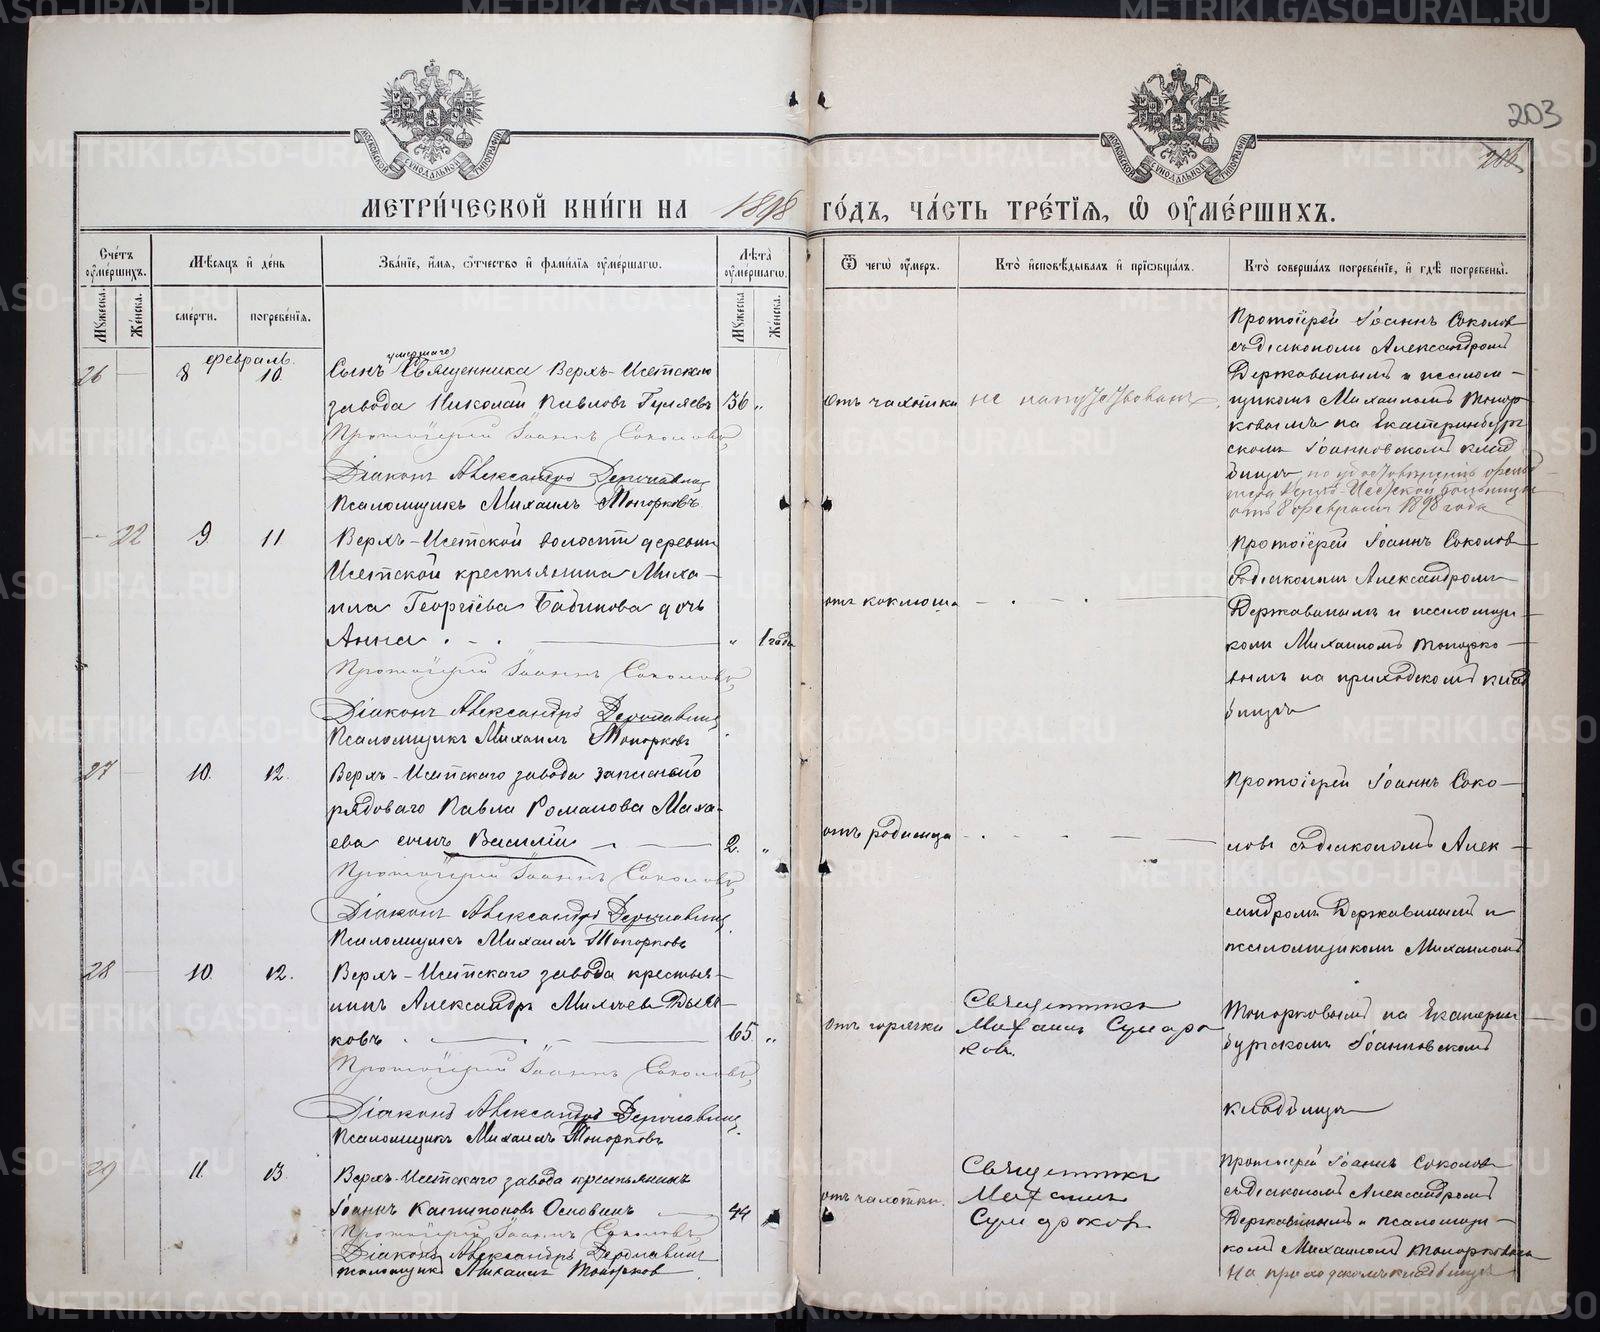 203
МЕТРИ́ЧЕСКОЙ КНИ́ГИ НА 1898 ГО́ДЪ, ЧА́СТЬ ТРЕ́ТІЯ, Ѡ ОУ҆МЕ́РШИХЪ.
Сче́тъ оу҆ме́ршихъ.
Мꙋ́жеска.
Же́нска.
Мѣ́сяцъ и҆ де́нь
сме́рти.
погребе́нїя.
Зва́нїе, и҆́мя, ѻ҆́тчество и҆ фами́лїя оу҆ме́ршагѡ.
Лѣ́та оу҆ме́ршагѡ.
Мꙋ́жеска.
Же́нска.
Ѿ чегѡ̀ оу҆́меръ.
Кто̀ и҆сповѣ́дывалъ и҆ прїѡбща́лъ.
Кто̀ соверша́лъ погребе́нїе, и҆ гдѣ̀ погребены̀.
февраль.
26
8
10.
умершаго
Сынъ Священника Верхъ-Исетскаго
завода Николай Павловъ Гуляевъ
36 "
Протоіерей Іоаннъ Соколовъ
Діаконъ Александръ Державинъ
Псаломщикъ Михаилъ Топорковъ.
отъ чахотки
не напутствованъ
Протоіерей Іоаннъ Соколовъ
съ діакономъ Александромъ
Державинымъ и псалом-
щикомъ Михаиломъ Топор-
ковымъ на Екатеринбург-
скомъ Іоанновскомъ клад-
бищѣ по удостовѣренію фельд-
шера Верхъ-Исетской больницы
отъ 8 февраля 1898 года
22
9.
11
Верхъ-Исетской волости деревни
Исетской крестьянина Миха-
ила Георгіева Бабинова дочь
Анна
" 1 года
Протоіерей Іоаннъ Соколовъ
Діаконъ Александръ Державинъ
Псаломщикъ Михаилъ Топорковъ
отъ коклюша
Протоіерей Іоаннъ Соколовъ
съ діакономъ Александромъ
Державинымъ и псаломщи-
комъ Михаиломъ Топорко-
вымъ на приходскомъ клад-
бищѣ
27
10.
12.
Верхъ-Исетскаго завода запаснаго
рядоваго Павла Романова Миха-
ева сынъ Василій
2. "
Протоіерей Іоаннъ Соколовъ
Діаконъ Александръ Державинъ
Псаломщикъ Михаилъ Топорковъ
отъ родимца
Протоіерей Іоаннъ Соко-
ловъ съ діакономъ Алек-
сандромъ Державинымъ и
псаломщикомъ Михаиломъ
28
10.
12.
Верхъ-Исетскаго завода крестья-
нинъ Александръ
ковъ
65. "
Протоіерей Іоаннъ Соколовъ
Діаконъ Александръ Державинъ
Псаломщикъ Михаилъ Топорковъ
отъ горячки
Священникъ
Михаилъ Сумаро
ковъ.
Топорковымъ на Екатерин-
бургскомъ Іоанновскомъ
кладбищѣ
29
11.
13.
Верхъ-Исетскаго завода крестьянинъ
Іоаннъ Капитоновъ Основинъ
44
Протоіерей Іоаннъ Соколовъ
Діаконъ Александръ Державинъ
псаломщикъ Михаилъ Топорков
отъ чахотки.
Священникъ
Михаилъ
Сумароковъ
Протоіерей Іоаннъ Соколовъ
съ діакономъ Александромъ
Державинымъ и псаломщи-
комъ Михаиломъ Топорковымъ
на приходскомъ кладбищѣ
METRIKI.GASO-URAL.RU